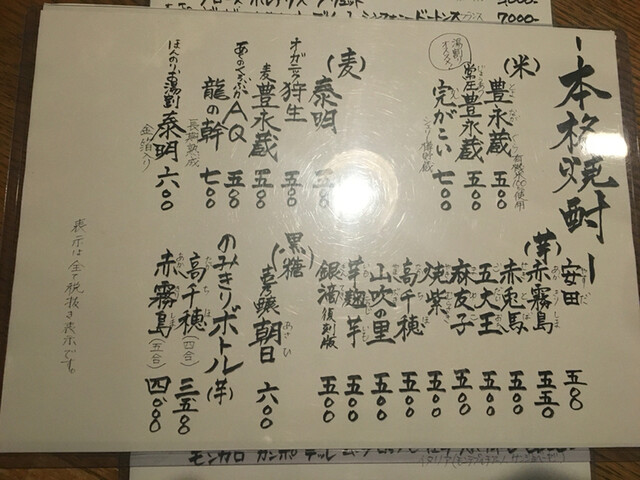 7000-
ー本格焼酎ー
(米)
豊永蔵 五〇〇
有機米使用
常圧豊永蔵 五〇〇
湯割オススメ
完がこい 七〇〇
シェリー樽貯蔵
(麦)
泰明 五〇〇
オガニック狩生 五〇〇
麦豊永蔵 五〇〇
AQ 五〇〇
龍の幹 七〇〇
長期熟成
ほんのりお湯割
泰明 六〇〇
金箔入り
(芋)
安田 五〇〇
赤霧島 五五〇
赤兎馬 五〇〇
五大王 五〇〇
麻友子 五〇〇
焼紫 五〇〇
高千穂 五〇〇
山吹の里 五〇〇
芋麹芋 五〇〇
銀滴 復刻版 五〇〇
(黒糖)
喜界朝日 六〇〇
あさひ
のみきりボトル(芋)
高千穂(四合) 三五〇〇
赤霧島(五合) 四〇〇〇
表示は全て税抜き表示です。